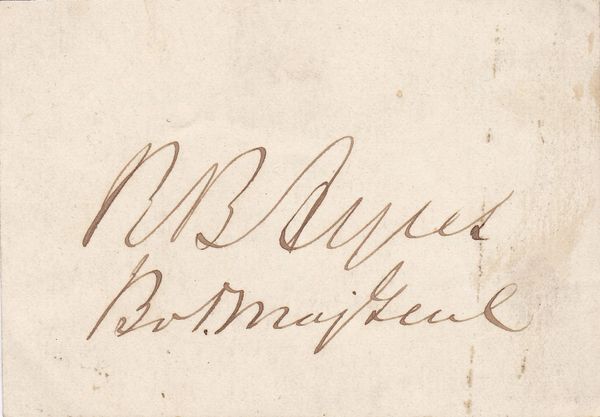 R B Ayres
Bvt. Maj Genl